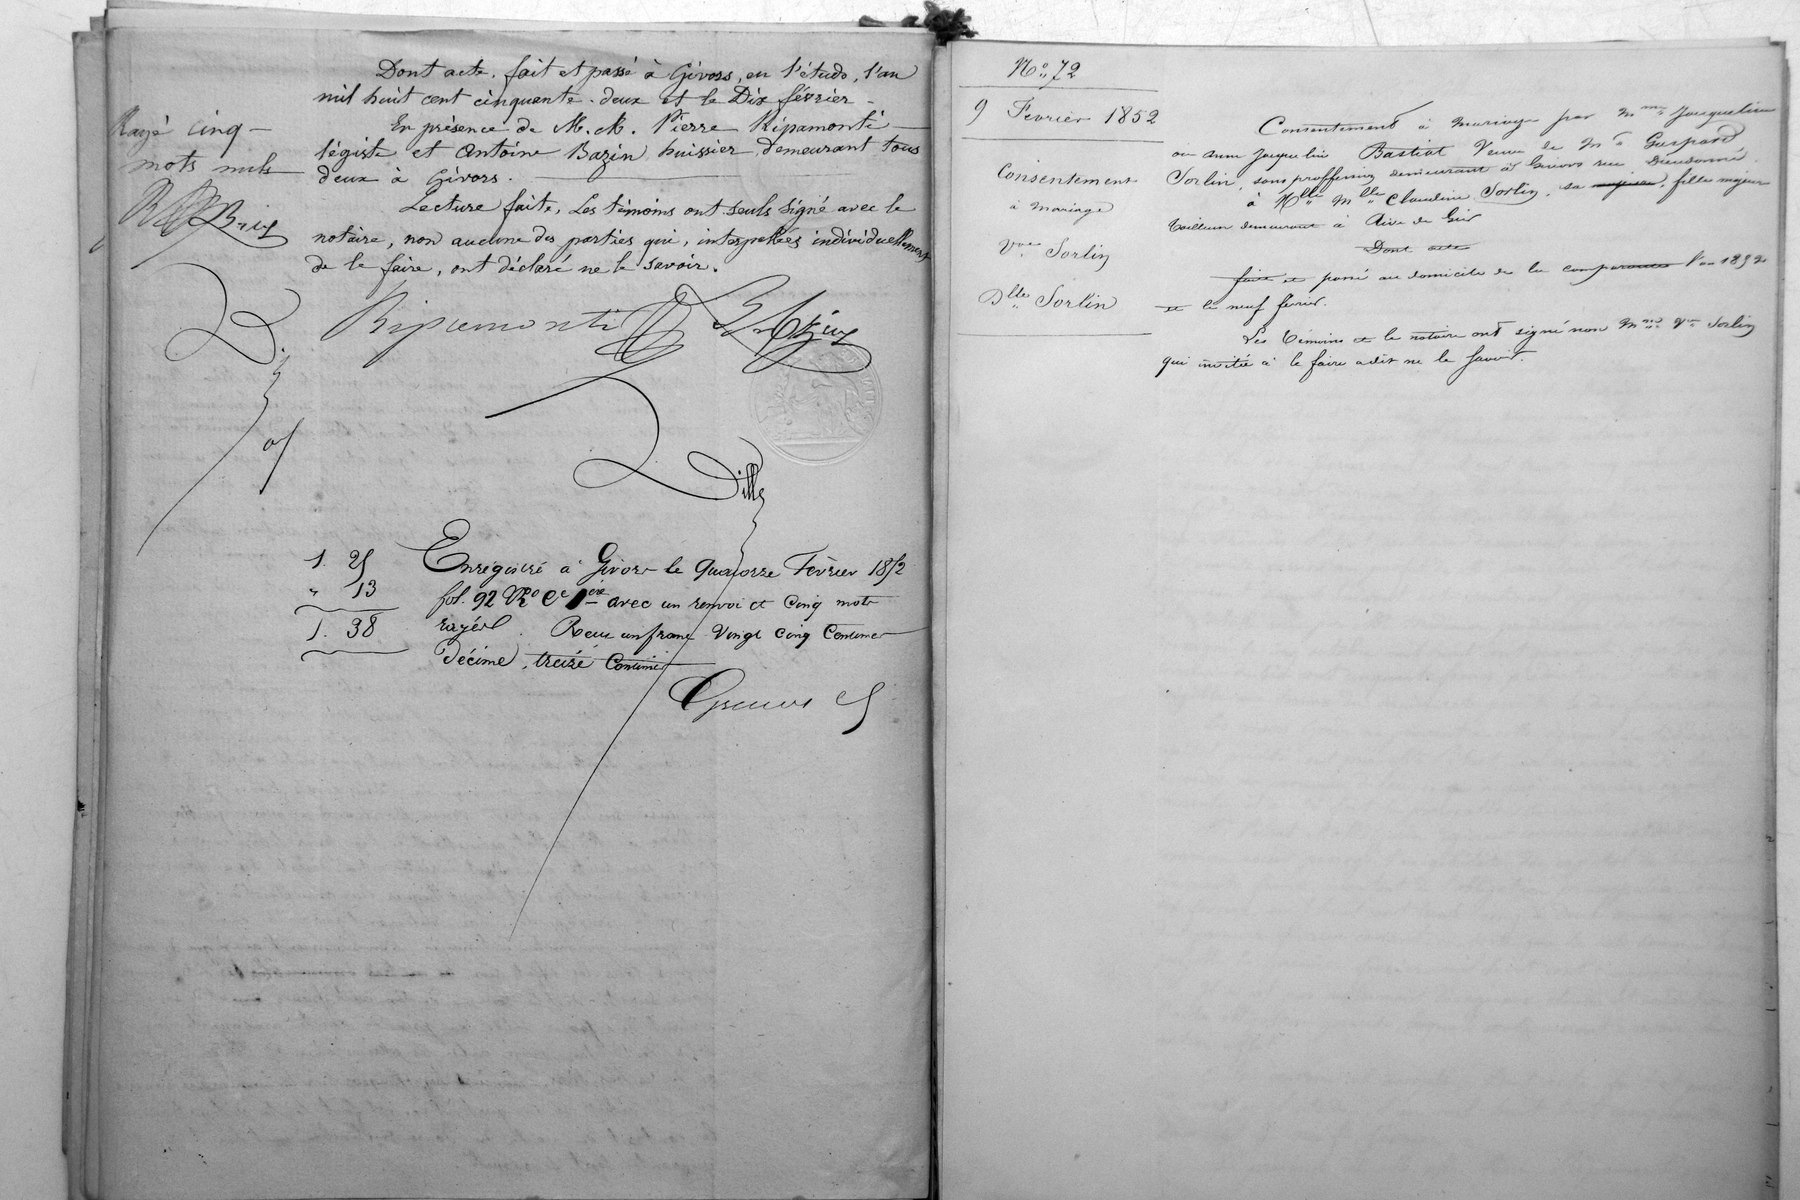 Dont acte, fait et passé à Givors, en l'étude, l'an
mil huit cent cinquante-deux et le Dix février
En présence de M.M. Pierre Ripamonti
légiste et Antoine Bazin huissier, demeurant tous
deux à Givors.
Lecture faite, les témoins ont seuls signé avec le
notaire, non aucune des parties qui, interpellées individuellement
de le faire, ont déclaré ne le savoir.
Rayé cinq
mots nuls
Ripamonti
Bazin
Dilly
1. 25
" 13
1. 38
Enregistré à Givors le quatorze Février 1852
fol. 92 Ro Ce 1ere avec un renvoi et cinq mots
rayés. Recu un franc vingt cinq centimes
Décime, treize centimes
No 72
9 Fevrier 1852
Consentement
à mariage
Vve Sorlin
Dlle Sorlin
Consentement à mariage par Mme Jacqueline
ou anne Jacqueline Bastiat Veuve de Mr Gaspard
Sorlin, sans proffession demeurant à Givors rue Dieudonné
à Mlle Claudine Sorlin, sa majeure, fille majeure
tailleuse demeurant à Rive de Gier
Dont acte
fait et passé au domicile de la comparante l'an 1852
et le neuf février.
Les témoins et le notaire ont signé non Mme Vve Sorlin
qui invitée à le faire a dit ne le savoir.